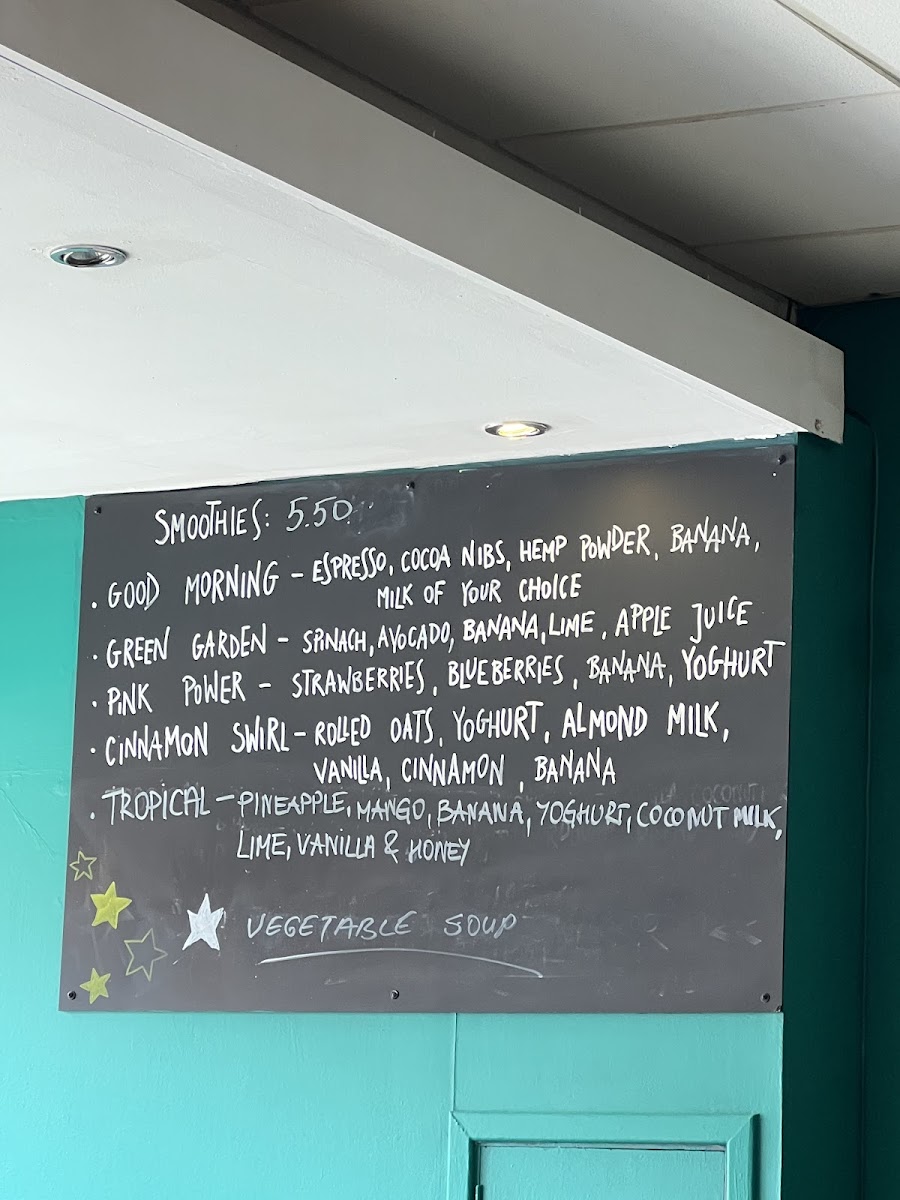 SMOOTHIES: 5.50
• GOOD MORNING – ESPRESSO, COCOA NIBS, HEMP POWDER, BANANA,
MILK OF YOUR CHOICE
• GREEN GARDEN – SPINACH, AVOCADO, BANANA, LIME, APPLE JUICE
• PINK POWER – STRAWBERRIES, BLUEBERRIES, BANANA, YOGHURT
• CINNAMON SWIRL – ROLLED OATS, YOGHURT, ALMOND MILK,
VANILLA, CINNAMON, BANANA
• TROPICAL – PINEAPPLE, MANGO, BANANA, YOGHURT, COCONUT MILK,
LIME, VANILLA & HONEY
VEGETABLE SOUP